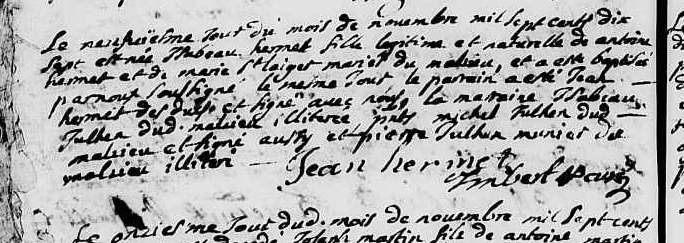 Le neufviesme Jour du mois de novembre mil Sept cents dix
Sept est née Isabeau hermet fille legitime et naturelle de antoine
hermet et de marie St laiger mariés du malzieu, et a esté baptisée
par nous Soussigné le mesme Jour le parrain a esté Jean
hermet des et signé avec nous, la marraine Isabeau
Julhen dud. malzieu illiterée pnts michel Julhen dud
malzieu et signé aussy et pierre Julhen munier du
malzieu illiteré
Jean hermet
Imbert
Le onziesme Jour dud. mois de novembre mil Sept cents
Joseph martin fils de antoine martin